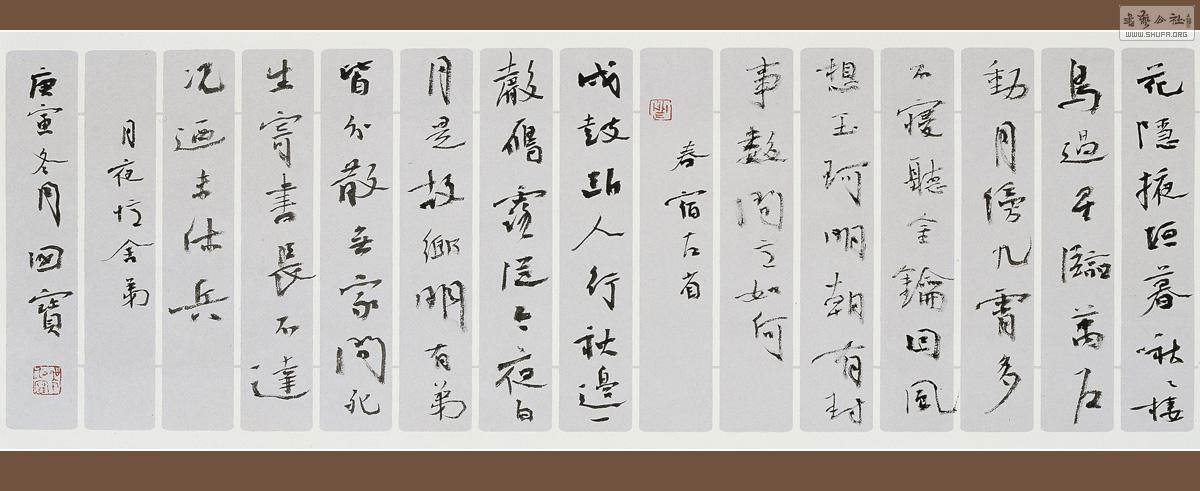 花隱掖垣暮啾〻棲
鳥過星臨萬戶
動月傍九霄多
不寢聽金鑰因風
想玉珂明朝有封
事數問夜如何
春宿左省
戍鼓斷人行秋邊一
聲鴈露從今夜白
月是故鄉明有弟
皆分散無家問死
生寄書長不達
况迺未休兵
月夜憶舍弟
庚寅冬月寶
书艺公社
WWW.SHUFA.ORG